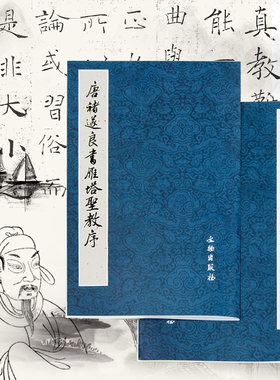 真教
曲學
論習俗而
是非大小
唐褚遂良書雁塔聖教序
文物出版社